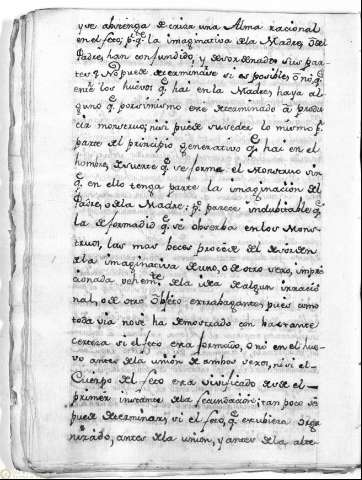 y se abstenga de criar una Alma racional
en el feto; p.r q.e la imaginativa de la Madre, o del
Padre, han confundido, y desordenado sus par-
tes? No puede determinarse si es posible, ò no q.e
entre los huevos q.e hai en la Madre, haya al-
guno q.e por si mismo esté determinado à produ-
cir monstruo; ni si puede suceder lo mismo p.r
parte del principio generativo q.e hai en el
hombre, de suerte q.e se forme el Monstruo sin
q.e en ello tenga parte la imaginacion del
Padre, o de la Madre: p.s parece indubitable q.e
la deformidad q.e se observa en los Mons-
truos, las mas veces procede del desorden
de la imaginativa de uno, o de otro sexo, impre-
cionada vehem.te de la idea de algun irracio-
nal, o de otro Objeto extrabagante; pues como
todavia no se ha demostrado con bastante
certeza si el feto era formado, o nó en el hue-
vo antes de la union de ambos sexos, ni si el
Cuerpo del feto era vivificado desde el
primer instante de la fecundacion; tan poco se
puede determinar, si el feto, q.e estubiera orga-
nizado, antes de la union, y antes de la alte-